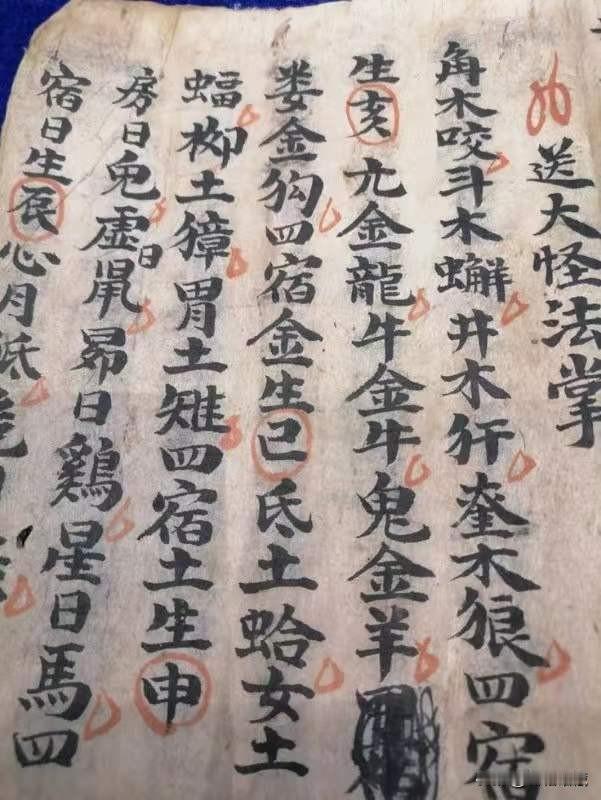 送大怪法掌
角木咬斗木蠏井木犴奎木狼四宿
生亥亢金龍牛金牛鬼金羊
娄金狗四宿金生巳氐土蛤女土
蝠柳土獐胃土雉四宿土生申
房日兎虛日䑕昴日鷄星日馬四
宿日生辰心月